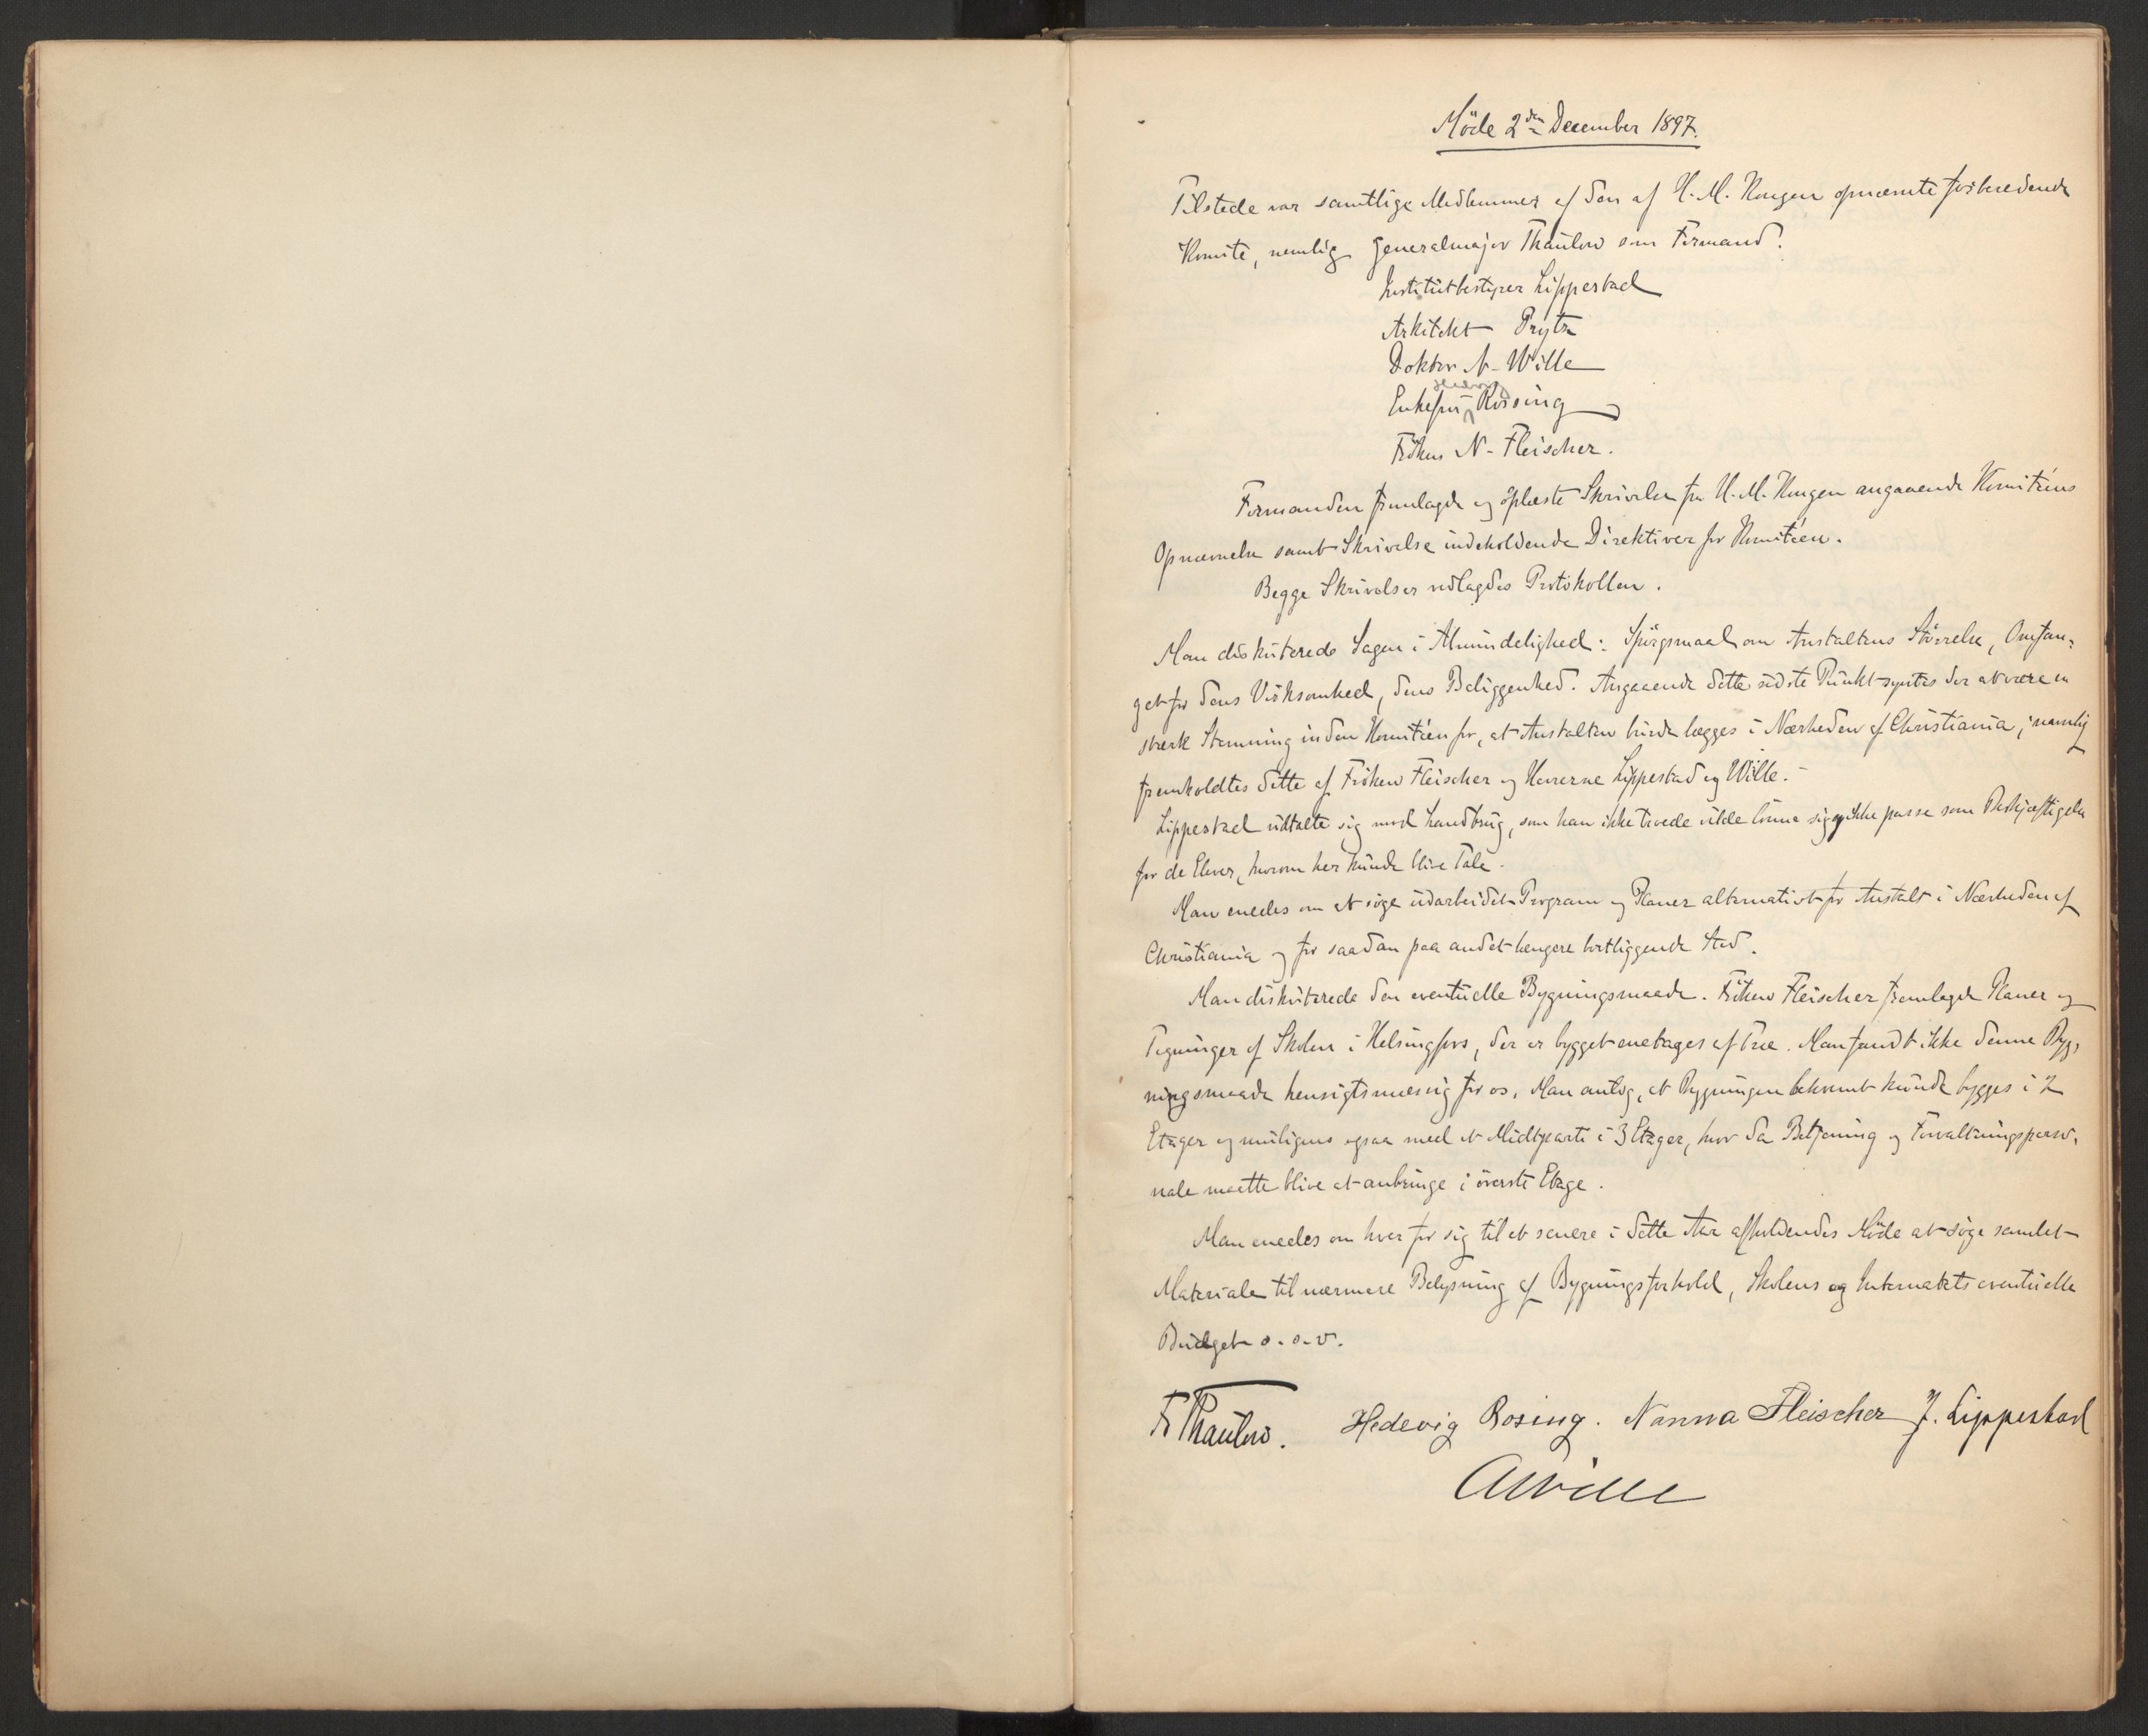 Möde 2den December 1897.
Tilstede var samtlige Medlemmer af den af H. M. Kongen opnævnte forberedende
Komite, nemlig Generalmajor Thaulow som Formand.
Institutbestyrer Lippestad
Arkitekt Prytz
Doktor A. Wille
Enkefru Hedevig Rosing
Fröken N. Fleischer.
Formanden fremlagde og oplæste Skrivelse fra H. M. Kongen angaaende Komitéens
Opnævnelse samt Skrivelse indeholdende Direktiver for Komitéen.
Begge Skrivelser vedlagdes Protokollen.
Man diskuterede Sagen i Almindelighed: Spörgsmaal om Anstaltens Störrelse, Omfan-
get for dens Virksomhed, dens Beliggenhed. Angaaende dette sidste Punkt syntes der at være en
stærk Stemning inden Komitéen for, at Anstalten burde lægges i Nærheden af Christiania; nemlig
fremholdtes dette af Fröken Fleischer og Herrerne Lippestad og Wille.
Lippestad udtalte sig mod Landbrug, som han ikke troede vilde lönne sig og ikke passe som Beskjæftigelse
for de Elever, hvorom her kunde blive Tale.
Man enedes om at söge udarbeidet Program og Planer alternativt for Anstalt i Nærheden af
Christiania og for saadan paa andet længere bortliggende Sted.
Man diskuterede den eventuelle Bygningsmaade. Fröken Fleischer fremlagde Planer og
Tegninger af Skolen i Helsingfors, der er bygget enetages af Træ. Man fandt ikke denne Byg-
ningsmaade hensigtsmæssig for os. Man antog, at Bygningen bekvemt kunde bygges i 2
Etager og muligens ogsaa med et Midtparti i 3 Etager, hvor da Betjening og Forvaltningsperso-
nale maatte blive at anbringe i överste Etage.
Man enedes om hver for sig til et senere i dette Aar afholdendes Möde at söge samlet
Materiale til nærmere Belysning af Bygningsforhold, Skolens og Internatets eventuelle
Budget o. s. v.
Fr Thaulow. Hedevig Rosing. Nanna Fleischer J. Lippestad
AWille